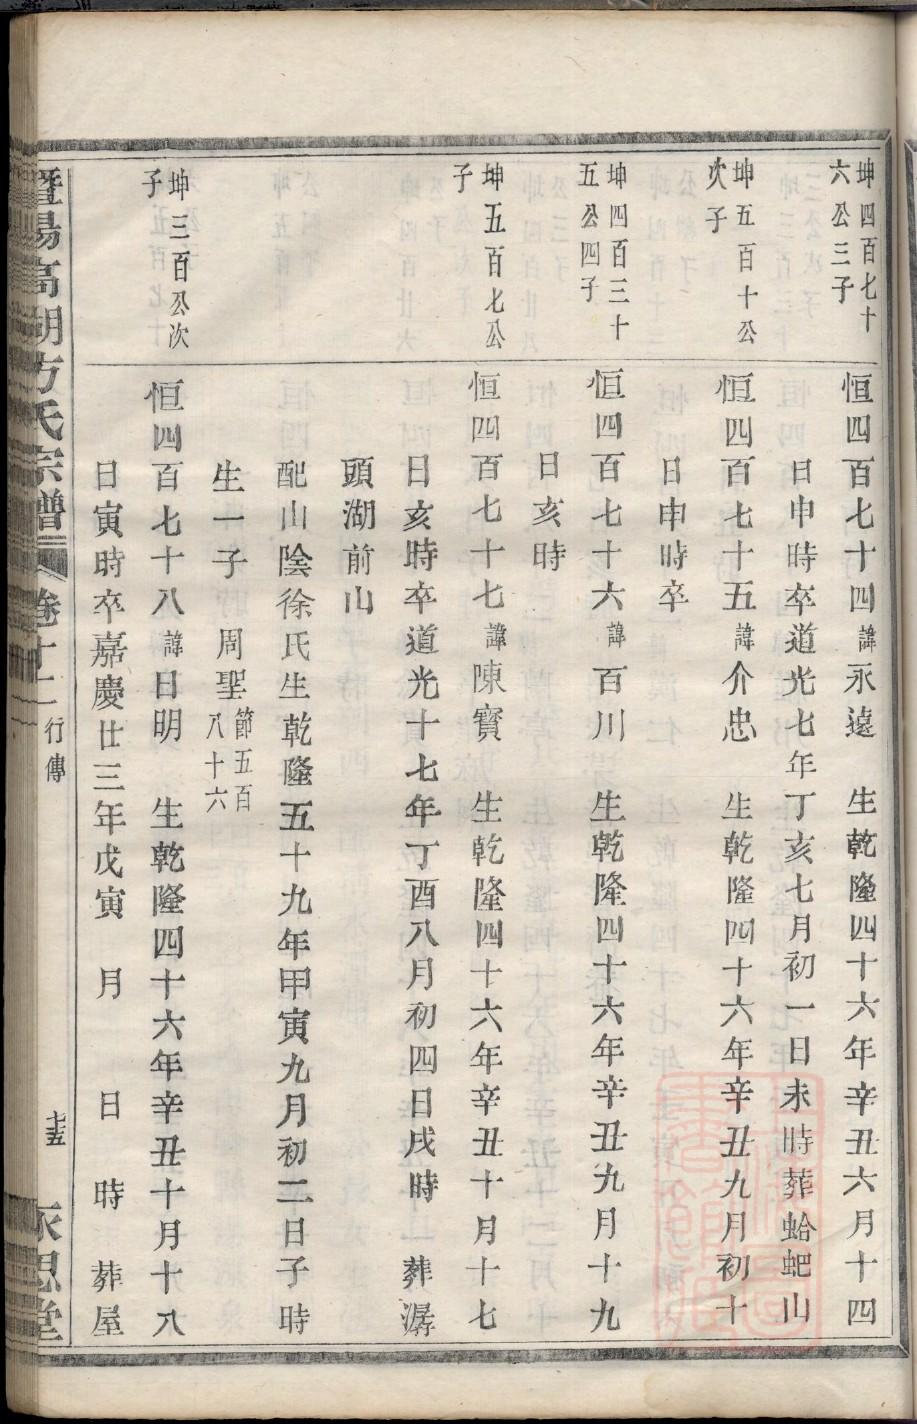 坤四百七十
六公三子
恒四百七十四諱永遠　生乾隆四十六年辛丑六月十四
日申時卒道光七年丁亥七月初一日未時葬蛤蚆山
坤五百十公
次子
恒四百七十五諱介忠　生乾隆四十六年辛丑九月初十
日申時卒
坤四百三十
五公四子
恒四百七十六諱百川　生乾隆四十六年辛丑九月十九
日亥時
坤五百七公
子
恒四百七十七諱陳寳　生乾隆四十六年辛丑十月十七
日亥時卒道光十七年丁酉八月初四日戌時　葬潺
頭湖前山
配山陰徐氏生乾隆五十九年甲寅九月初二日子時
生一子　周聖節五百
八十六
坤三百公次
子
恒四百七十八諱日明　生乾隆四十六年辛丑十月十八
日寅時卒嘉慶廿三年戊寅　月　日　時　葬屋
暨陽高湖方氏宗譜　卷十一　行傳　七十五　永思堂